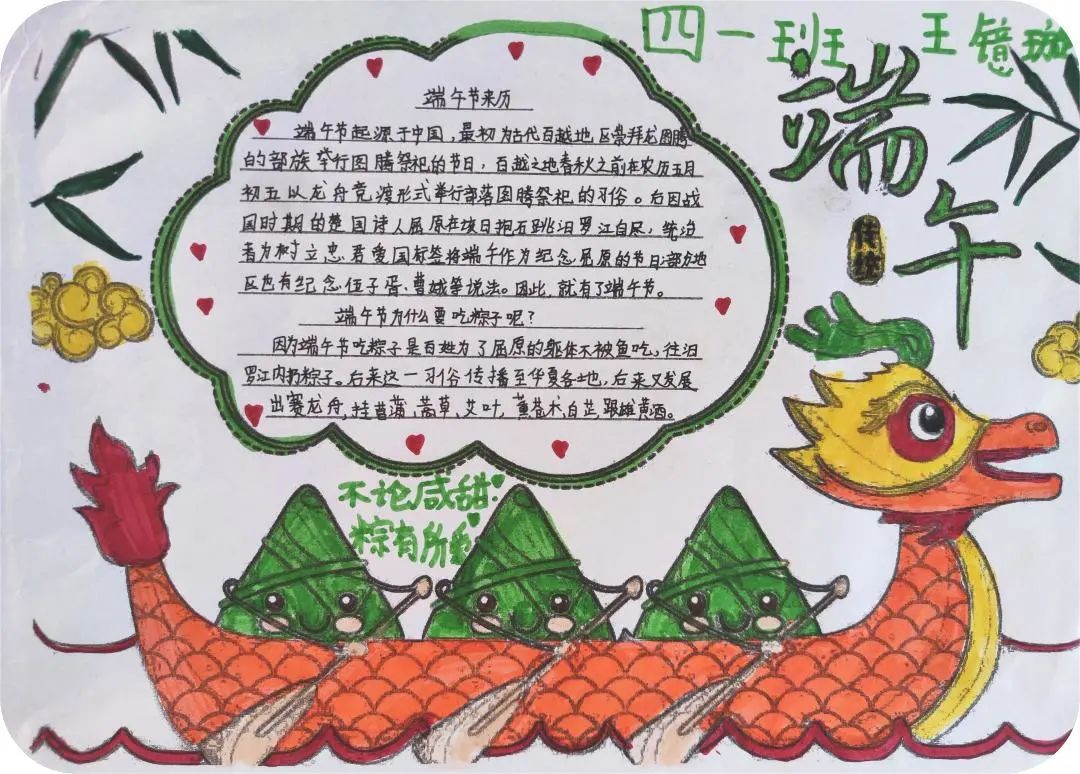 四一班 王镜斑
端午
传统
端午节来历
端午节起源于中国，最初为古代百越地区崇拜龙图腾
的部族举行图腾祭祀的节日，百越之地春秋之前在农历五月
初五以龙舟竞渡形式举行部落图腾祭祀的习俗。后因战
国时期的楚国诗人屈原在该日抱石跳汨罗江自尽，统治
者为树立忠君爱国标签将端午作为纪念屈原的节日；部分地
区也有纪念伍子胥、曹娥等说法。因此，就有了端午节。
端午节为什么要吃粽子呢？
因为端午节吃粽子是百姓为了屈原的躯体不被鱼吃，往汨
罗江内扔粽子。后来这一习俗传播至华夏各地，后来又发展
出赛龙舟，挂菖蒲，蒿草，艾叶，薰苍术，白芷，跟雄黄酒。
不论咸甜
粽有所爱